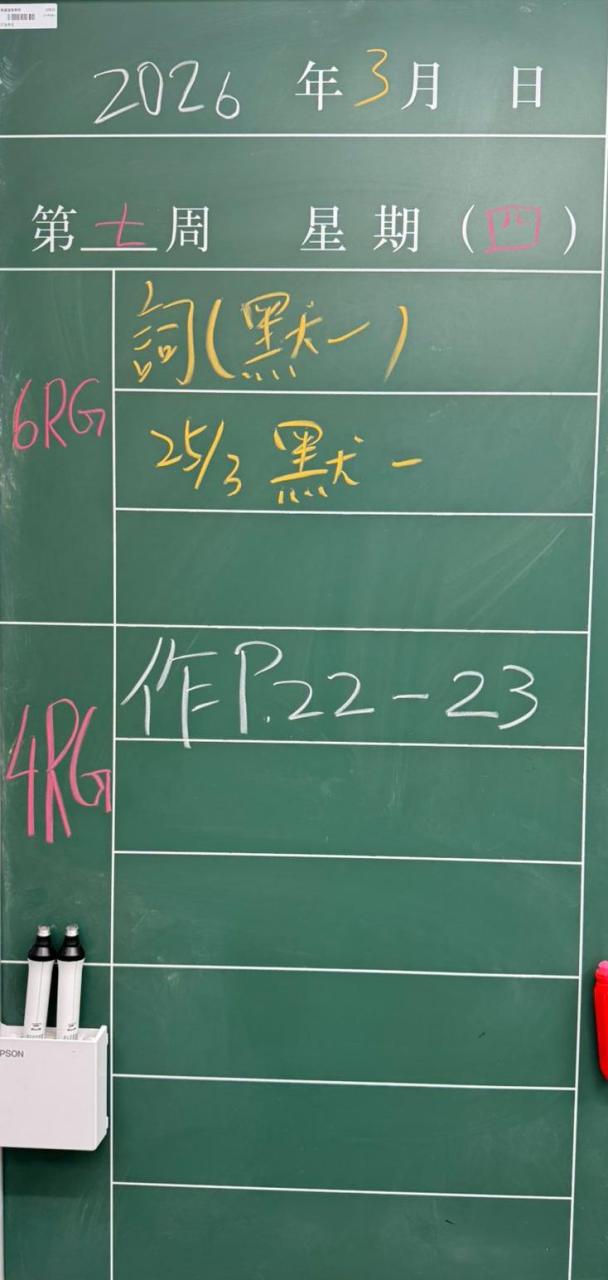 2026 年 3 月 日
第 七 周 星 期 ( 四 )
6RG
詞(默一)
25/3 默一
4RG
作P.22-23
PSON